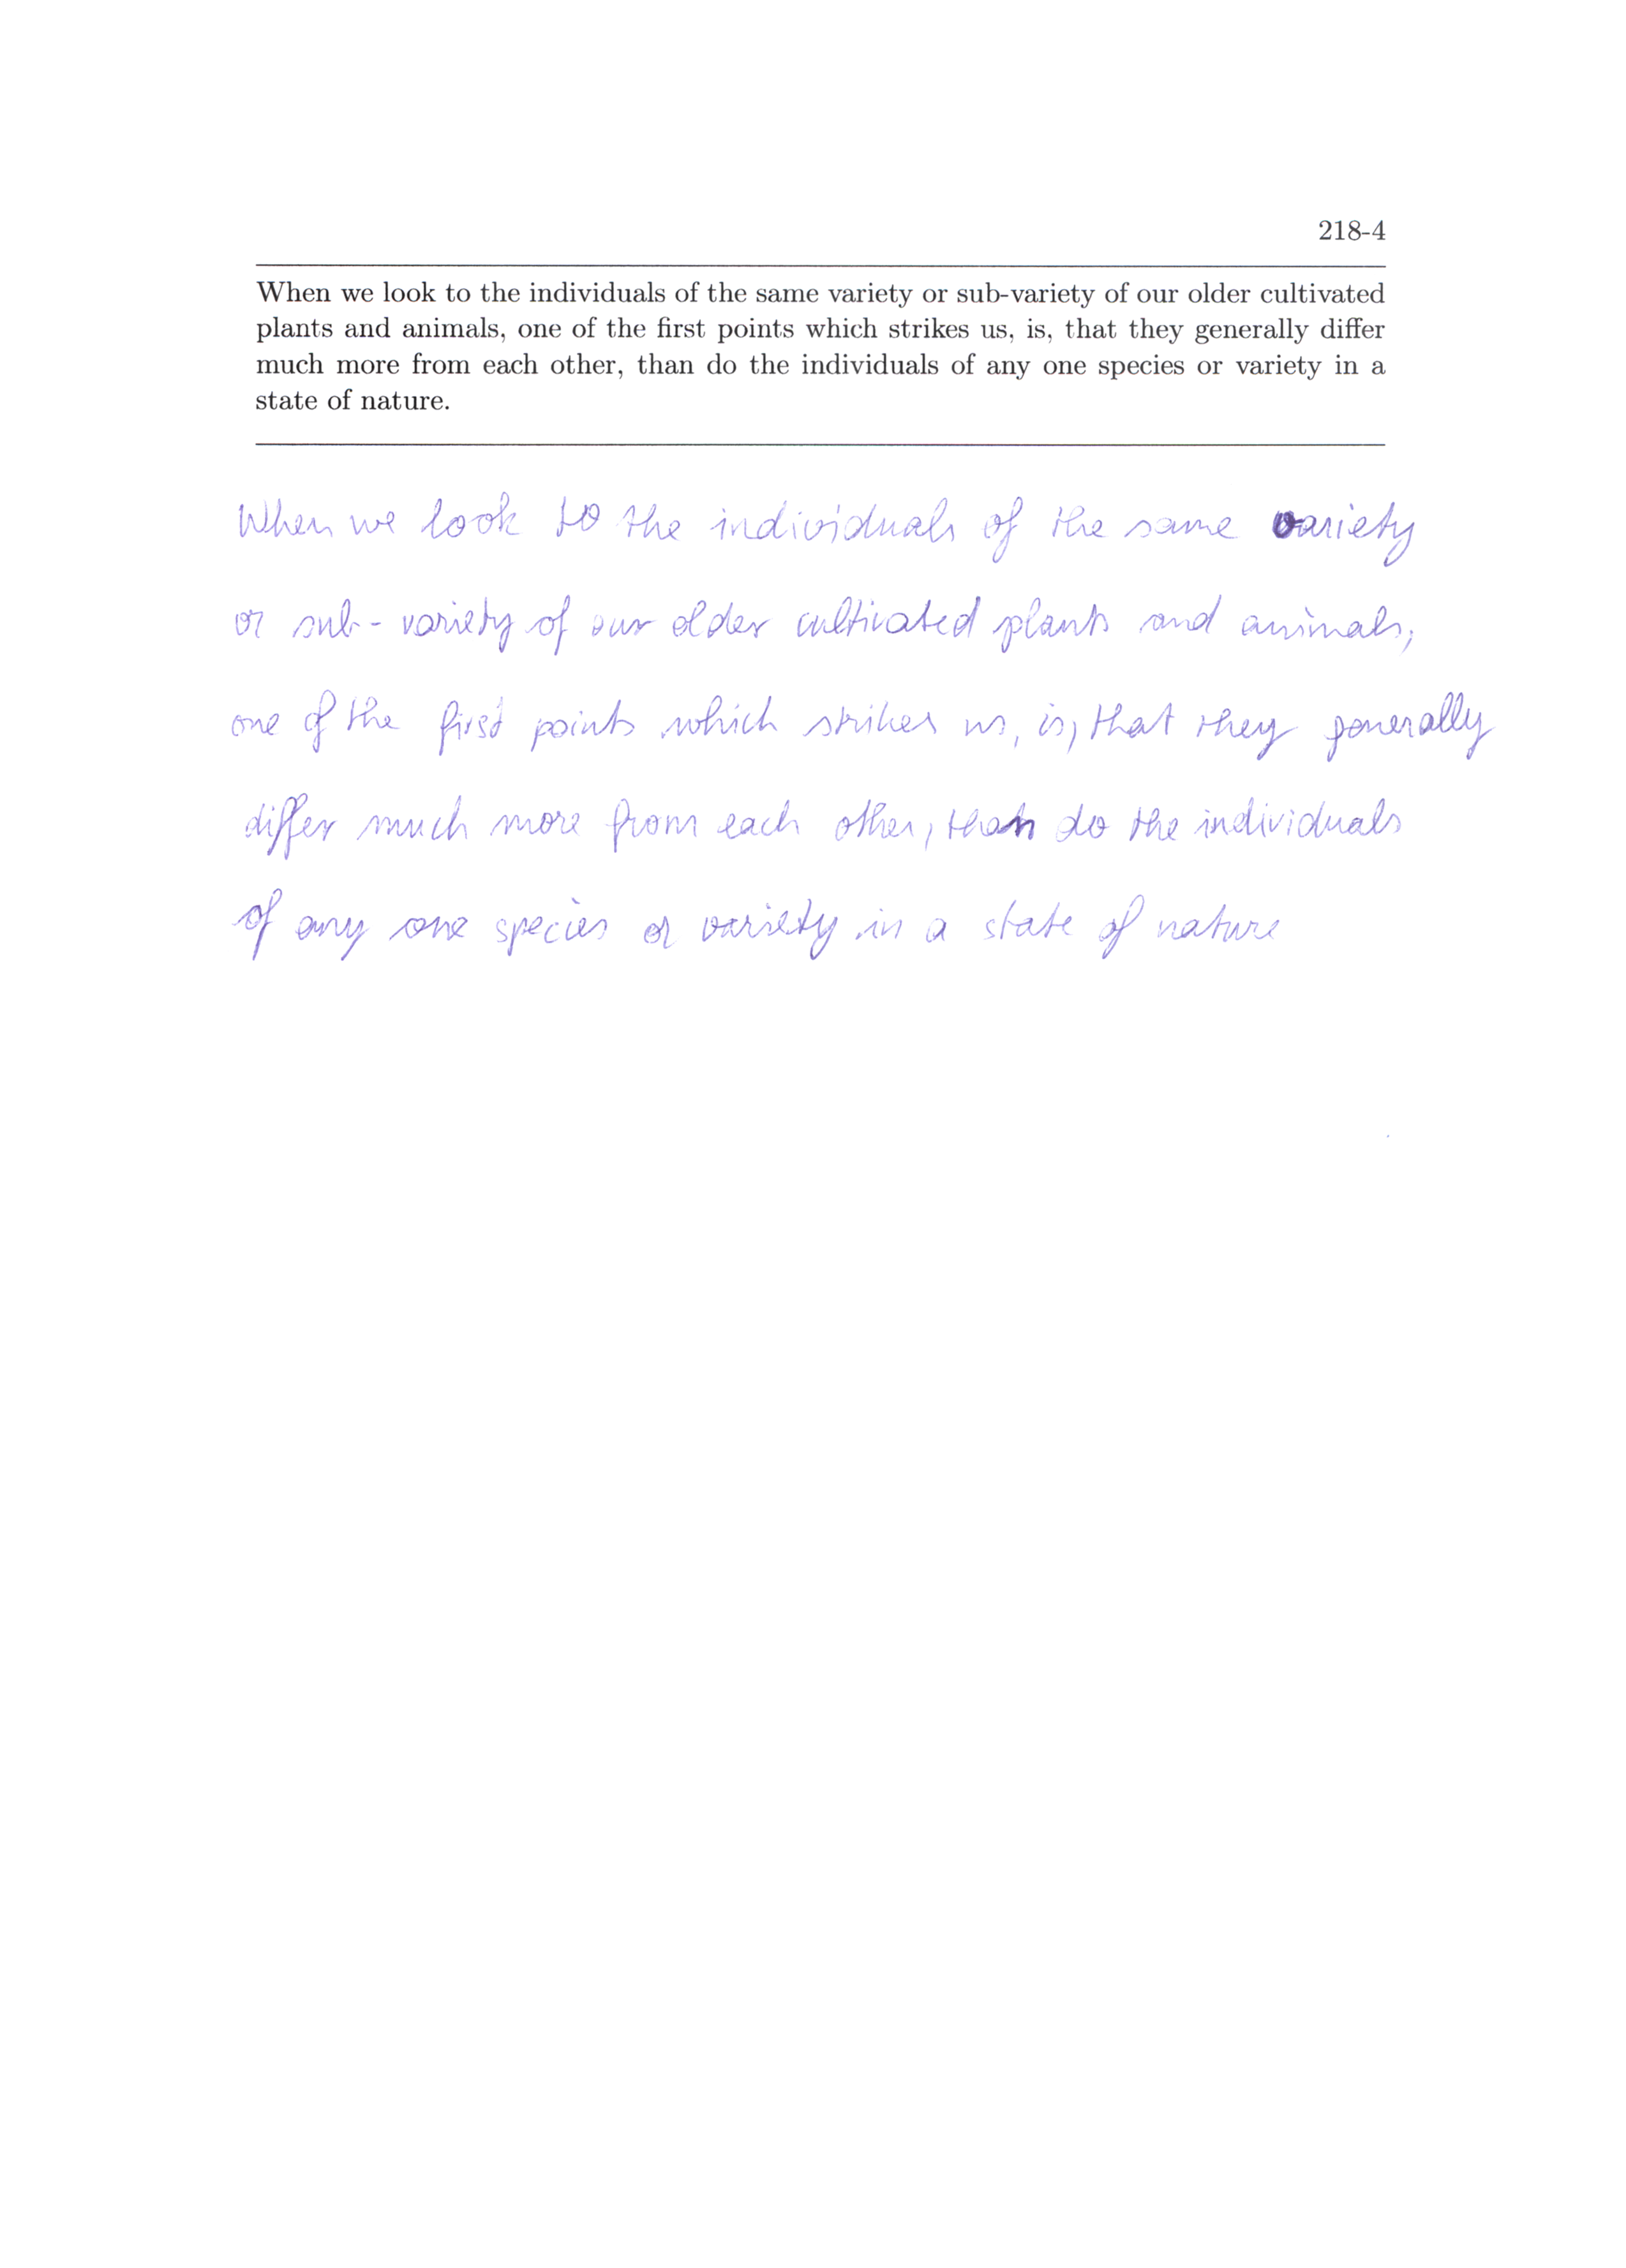 218-4
When we look to the individuals of the same variety or sub-variety of our older cultivated
plants and animals, one of the first points which strikes us, is, that they generally differ
much more from each other, than do the individuals of any one species or variety in a
state of nature.
When we look to the individuals of the same variety
or sub-variety of our older cultivated plants and animals,
one of the first points which strikes us, is, that they generally
differ much more from each other, than do the individuals
of any one species or variety in a state of nature